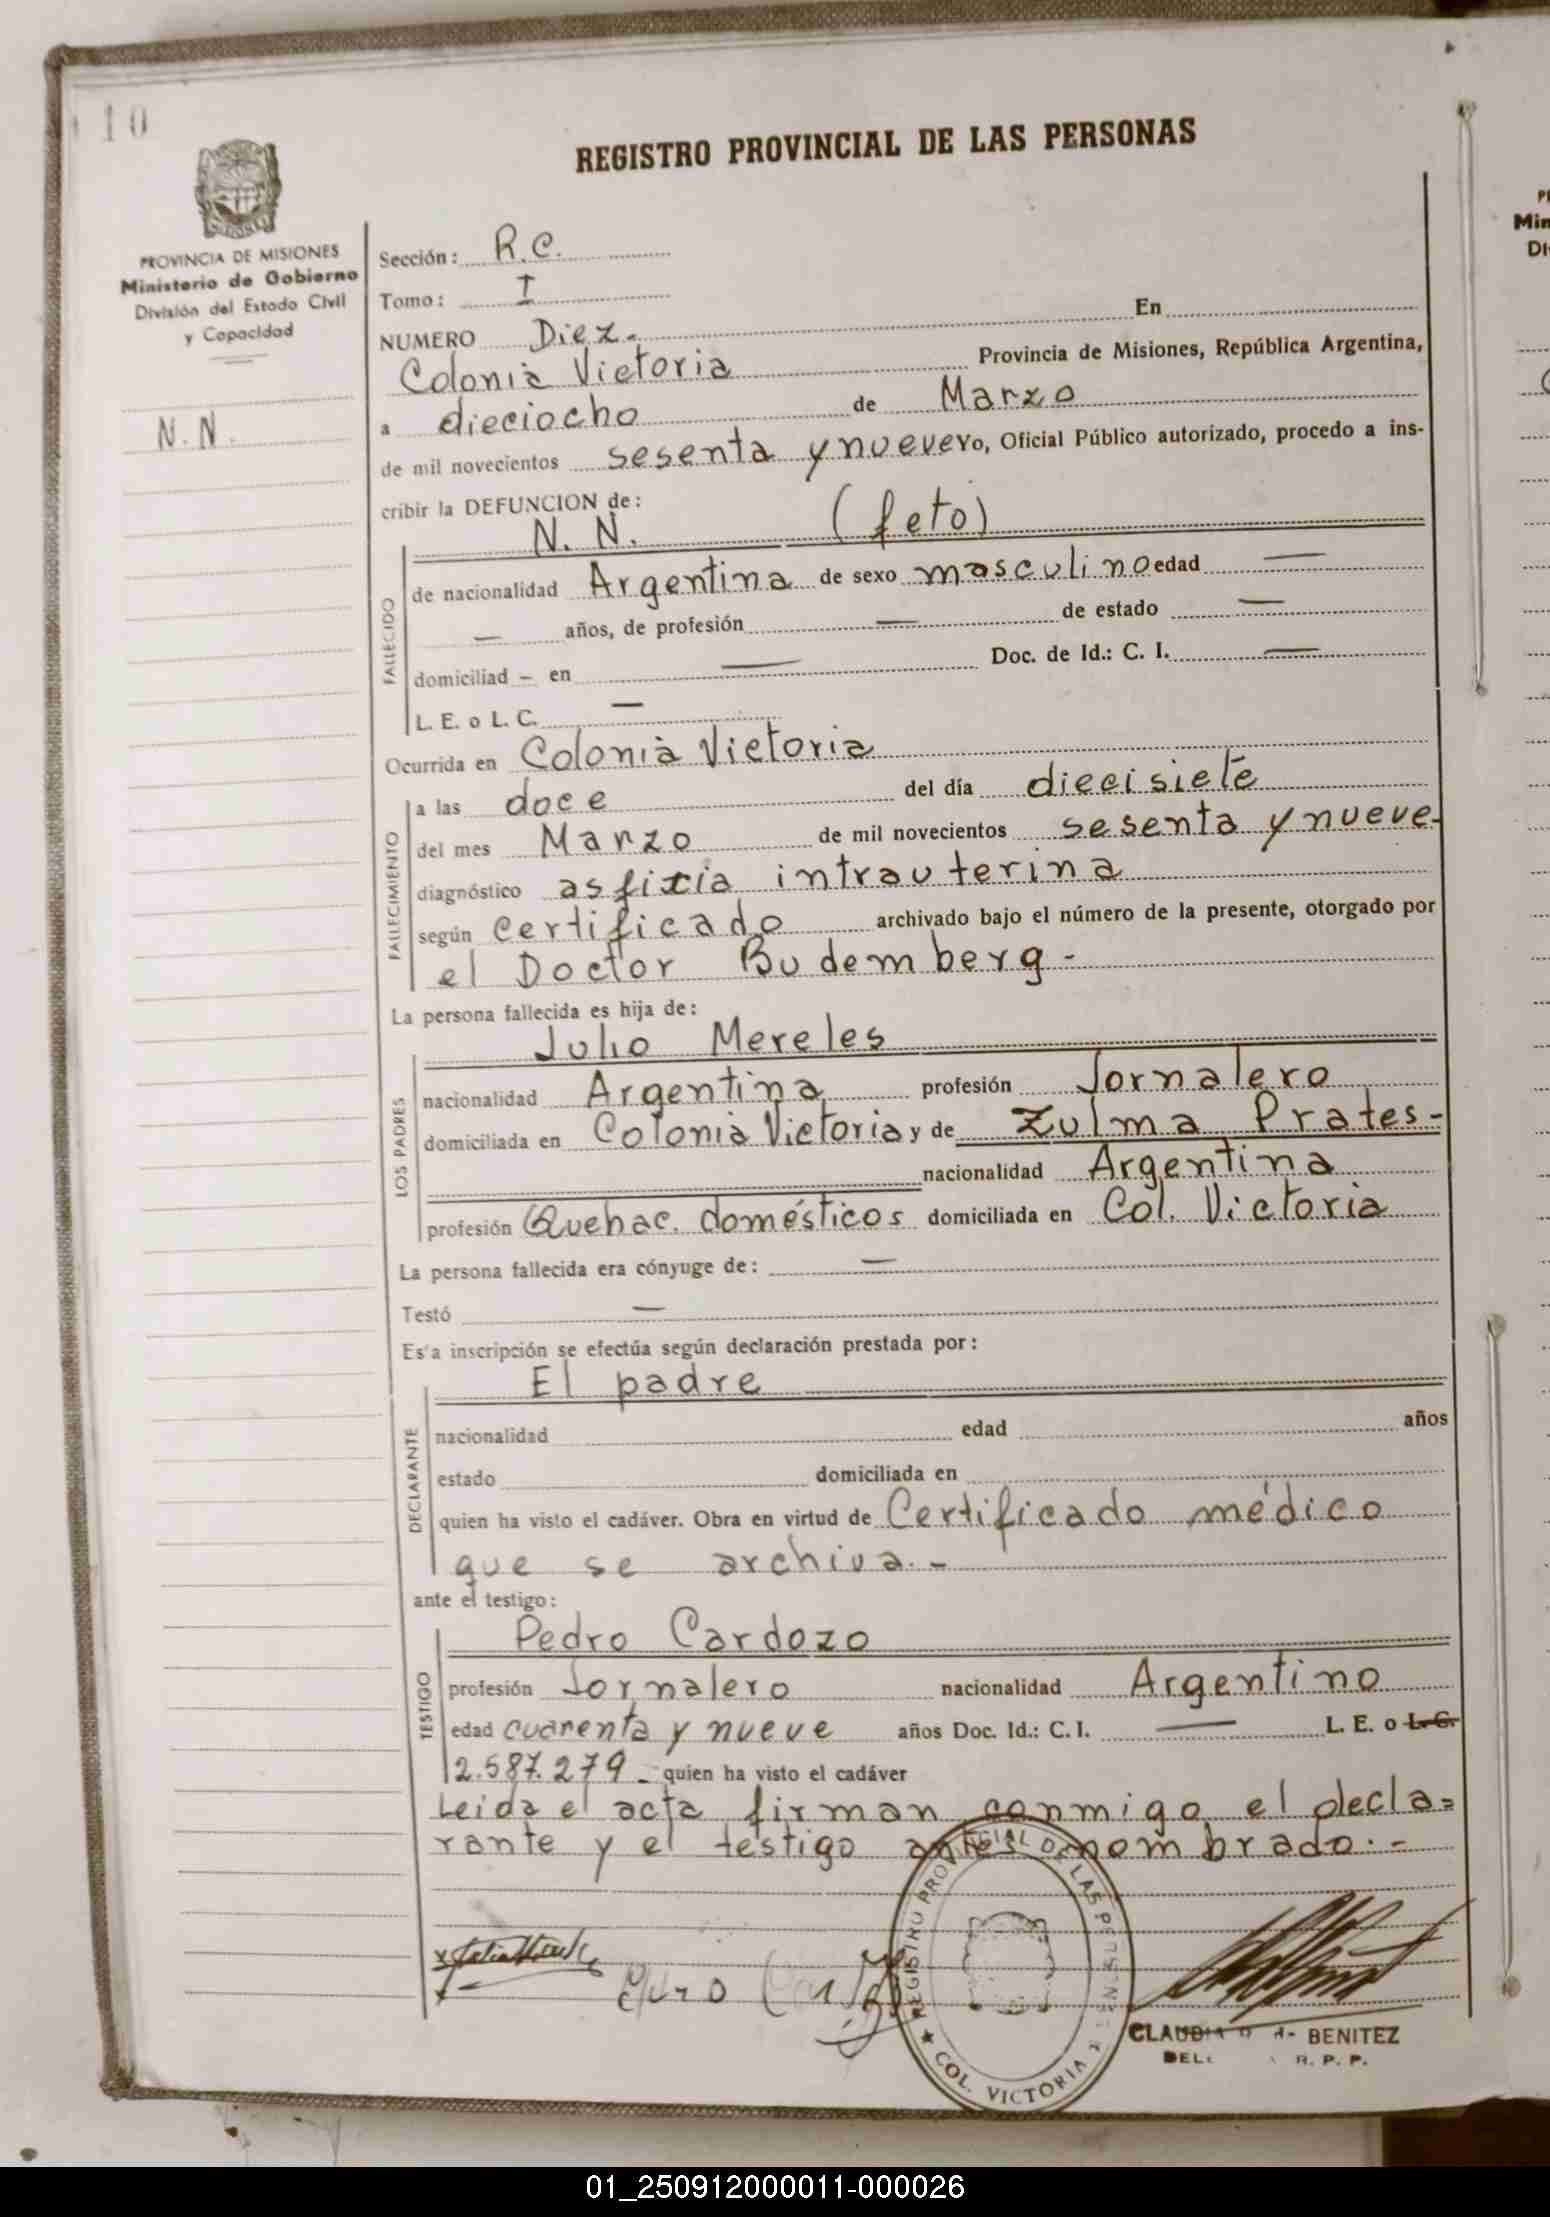 10
REGISTRO PROVINCIAL DE LAS PERSONAS
PROVINCIA DE MISIONES
Ministerio de Gobierno
División del Estado Civil
y Capacidad
N. N.
Sección: R.C.
Tomo: I
NUMERO Diez. En
Colonia Victoria Provincia de Misiones, República Argentina,
a dieciocho de Marzo
de mil novecientos sesenta y nueve Yo, Oficial Público autorizado, procedo a ins-
cribir la DEFUNCION de:
N. N. (feto)
FALLECIDO
de nacionalidad Argentina de sexo masculino edad —
— años, de profesión — de estado —
domiciliad – en — Doc. de Id.: C. I. —
L. E. o L. C. —
Ocurrida en Colonia Victoria
FALLECIMIENTO
a las doce del día diecisiete
del mes Marzo de mil novecientos sesenta y nueve-
diagnóstico asfixia intrauterina
según certificado archivado bajo el número de la presente, otorgado por
el Doctor Budemberg -
La persona fallecida es hija de:
Julio Mereles
LOS PADRES
nacionalidad Argentina profesión Jornalero
domiciliada en Colonia Victoria y de Zulma Prates-
nacionalidad Argentina
profesión Quehac. domésticos domiciliada en Col. Victoria
La persona fallecida era cónyuge de: —
Testó —
Es'a inscripción se efectúa según declaración prestada por:
El padre
DECLARANTE
nacionalidad edad años
estado domiciliada en
quien ha visto el cadáver. Obra en virtud de Certificado médico
que se archiva.-
ante el testigo:
Pedro Cardozo
TESTIGO
profesión Jornalero nacionalidad Argentino
edad cuarenta y nueve años Doc. Id.: C. I. — L. E. o L. C.
2.587.279 - quien ha visto el cadáver
Leida el acta firman conmigo el decla=
rante y el testigo antes nombrado.-
REGISTRO PROVINCIAL DE LAS PERSONAS
★ COL. VICTORIA
BENITEZ
R. P. P.
01_250912000011-000026